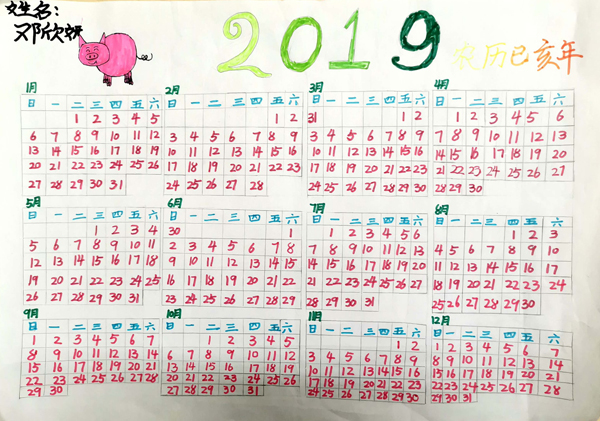 姓名:
邓欣妍
2019
农历已亥年
1月
日 一 二 三 四 五 六
1 2 3 4 5
6 7 8 9 10 11 12
13 14 15 16 17 18 19
20 21 22 23 24 25 26
27 28 29 30 31
2月
日 一 二 三 四 五 六
1 2
3 4 5 6 7 8 9
10 11 12 13 14 15 16
17 18 19 20 21 22 23
24 25 26 27 28
3月
日 一 二 三 四 五 六
31 1 2
3 4 5 6 7 8 9
10 11 12 13 14 15 16
17 18 19 20 21 22 23
24 25 26 27 28 29 30
4月
日 一 二 三 四 五 六
1 2 3 4 5 6
7 8 9 10 11 12 13
14 15 16 17 18 19 20
21 22 23 24 25 26 27
28 29 30
5月
日 一 二 三 四 五 六
1 2 3 4
5 6 7 8 9 10 11
12 13 14 15 16 17 18
19 20 21 22 23 24 25
26 27 28 29 30 31
6月
日 一 二 三 四 五 六
30 1
2 3 4 5 6 7 8
9 10 11 12 13 14 15
16 17 18 19 20 21 22
23 24 25 26 27 28 29
7月
日 一 二 三 四 五 六
1 2 3 4 5 6
7 8 9 10 11 12 13
14 15 16 17 18 19 20
21 22 23 24 25 26 27
28 29 30 31
8月
日 一 二 三 四 五 六
1 2 3
4 5 6 7 8 9 10
11 12 13 14 15 16 17
18 19 20 21 22 23 24
25 26 27 28 29 30
9月
日 一 二 三 四 五 六
1 2 3 4 5 6 7
8 9 10 11 12 13 14
15 16 17 18 19 20 21
22 23 24 25 26 27 28
29 30
10月
日 一 二 三 四 五 六
1 2 3 4 5
6 7 8 9 10 11 12
13 14 15 16 17 18 19
20 21 22 23 24 25 26
27 28 29 30 31
11月
日 一 二 三 四 五 六
1 2
3 4 5 6 7 8 9
10 11 12 13 14 15 16
17 18 19 20 21 22 23
24 25 26 27 28 29 30
12月
日 一 二 三 四 五 六
1 2 3 4 5 6 7
8 9 10 11 12 13 14
15 16 17 18 19 20 21
22 23 24 25 26 27 28
29 30 31